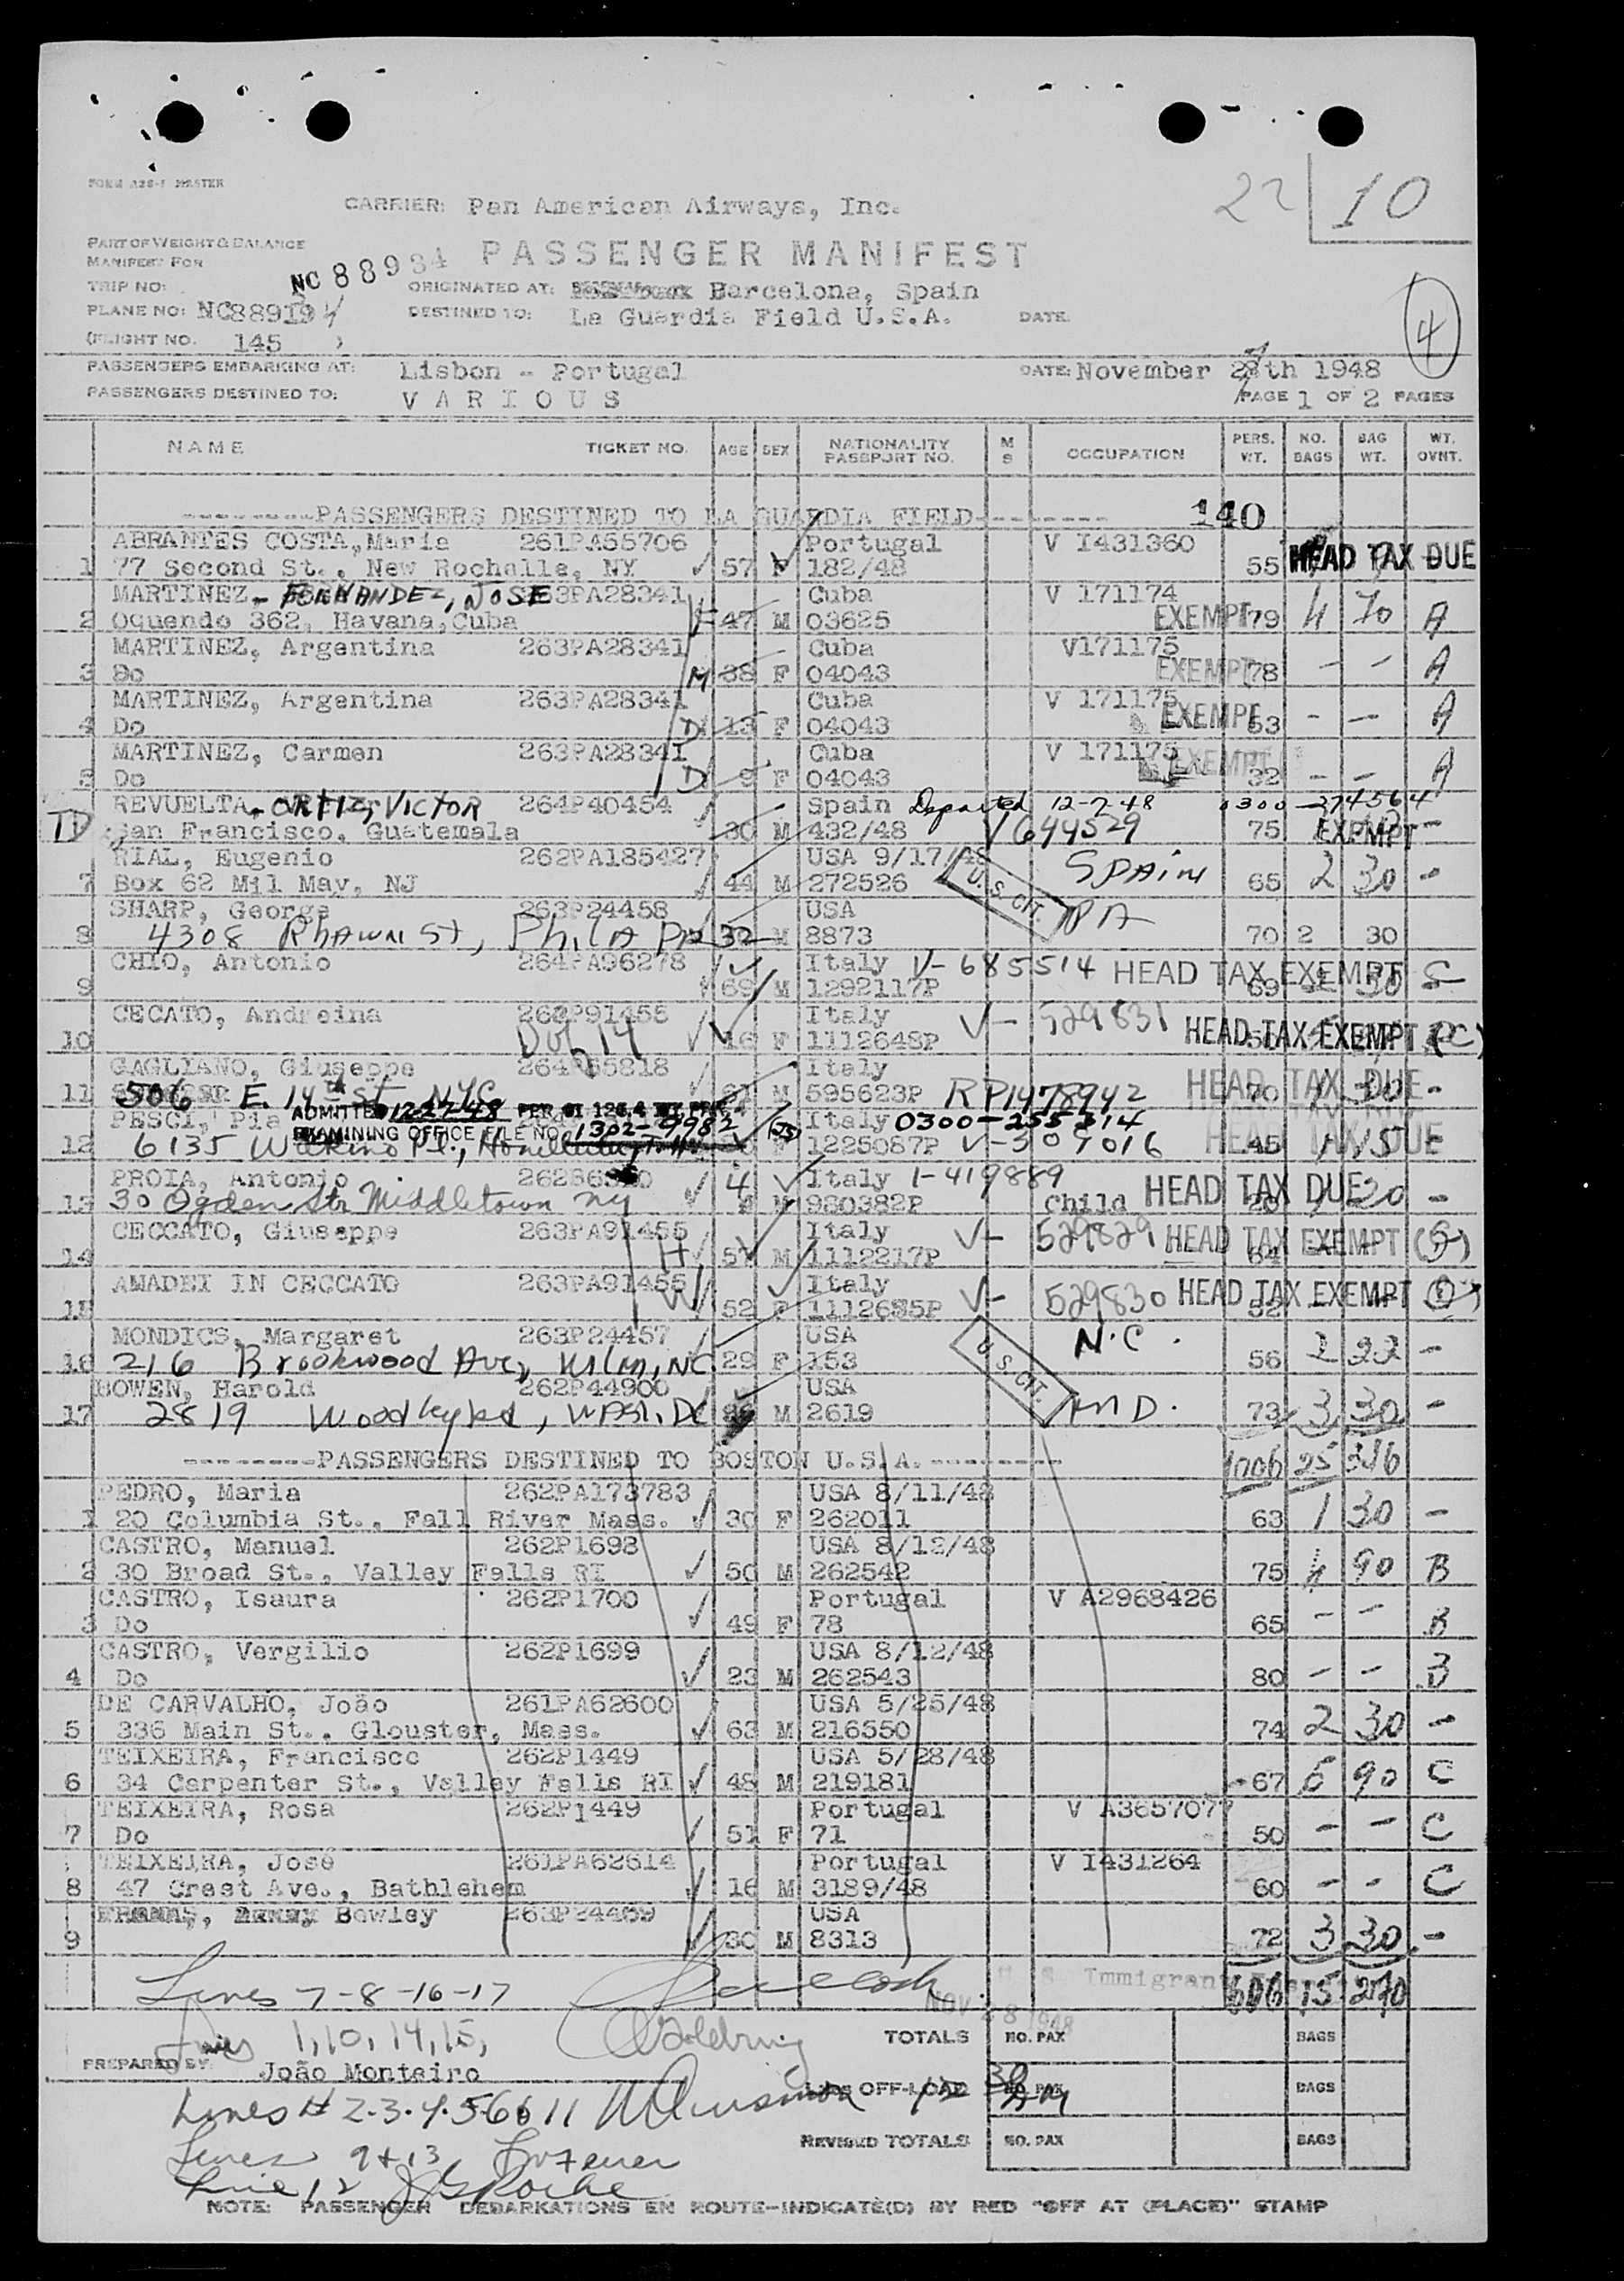 FORM 128-1 MASTER
22 10
CARRIER: Pan American Airways, Inc.
PART OF WEIGHT & BALANCE
MANIFEST FOR
PASSENGER MANIFEST
NC 88934
TRIP NO:
ORIGINATED AT: Barcelona, Spain
PLANE NO: NC88919
DESTINED TO: La Guardia Field U.S.A. DATE:
4
(FLIGHT NO. 145 )
PASSENGERS EMBARKING AT: Lisbon - Portugal DATE: November 28th 1948
PASSENGERS DESTINED TO: VARIOUS PAGE 1 OF 2 PAGES
NAME TICKET NO. AGE SEX NATIONALITY PASSPORT NO. M S OCCUPATION PERS. WT. NO. BAGS BAG WT. WT. OVNT.
--------PASSENGERS DESTINED TO LA GUARDIA FIELD-------- 140
ABRANTES COSTA, Maria 261PA55706 Portugal V I431360
1 77 Second St., New Rochelle, NY 57 F 182/48 55 HEAD TAX DUE
MARTINEZ - FERNANDEZ, JOSE 263PA28341 Cuba V 171174
2 Oquendo 362, Havana, Cuba 47 M 03625 EXEMPT 79 4 70 A
MARTINEZ, Argentina 263PA28341 Cuba V171175
3 Do M 38 F 04043 EXEMPT 78 - - A
MARTINEZ, Argentina 263PA28341 Cuba V 171175
4 Do D 13 F 04043 EXEMPT 53 - - A
MARTINEZ, Carmen 263PA28341 Cuba V 171175
5 Do D 9 F 04043 EXEMPT 32 - - A
REVUELTA - ORTIZ, VICTOR 264P40454 Spain Departed 12-7-48 0300-274564
TD San Francisco, Guatemala 30 M 432/48 V 644529 75 EXEMPT -
RIAL, Eugenio 262PA185427 USA 9/17/48 SPAIN
7 Box 62 Mil May, NJ 44 M 272526 U.S. CIT. 65 2 30 -
SHARP, George 263P24458 USA PA
8 4308 Rhawn St, Phila Pa 32 M 8873 70 2 30
CHIO, Antonio 264PA96278 Italy V-685514 HEAD TAX EXEMPT S
9 69 M 1292117P 69 30
CECATO, Andreina 263P91455 Italy V- 529831
10 D of 14 16 F 1112648P HEAD TAX EXEMPT (C)
GAGLIANO, Giuseppe 264P65818 Italy HEAD TAX DUE
11 506 E. 14th St NYC M 595623P RP1478942 70 1 30 -
PESCI, Pia ADMITTED 12-27-48 Italy 0300-255314
EXAMINING OFFICE FILE NO. 1302-9982
12 6135 F 1225087P V-309016 45 1 15 - HEAD TAX DUE
PROIA, Antonio Italy 1-419889
13 30 Ogden Str Middletown ny 4 M 980382P Child HEAD TAX DUE 20 1 20 -
CECCATO, Giuseppe 263PA91455 Italy V- 529829 HEAD TAX EXEMPT
14 H 57 M 1112217P 64
AMADEI IN CECCATO 263PA91455 Italy V- 529830 HEAD TAX EXEMPT
15 W 52 F 1112685P 52
MONDICS, Margaret 263P24457 USA N.C.
16 216 Brookwood Ave, Wilm, NC 29 F 153 U.S. CIT. 56 2 22 -
BOWEN, Harold 262P44900 USA
17 2819 Woodleyrd, Wash. DC M 2619 MD. 73 3 30 -
--------PASSENGERS DESTINED TO BOSTON U.S.A.--------- 1006 25 316
PEDRO, Maria 262PA173783 USA 8/11/48
1 20 Columbia St., Fall River Mass. 30 F 262011 63 1 30 -
CASTRO, Manuel 262P1698 USA 8/12/48
2 30 Broad St., Valley Falls RI 50 M 262542 75 4 90 B
CASTRO, Isaura 262P1700 Portugal V A2968426
3 Do 49 F 78 65 - - B
CASTRO, Vergilio 262P1699 USA 8/12/48
4 Do 23 M 262543 80 - - B
DE CARVALHO, João 261PA62600 USA 5/25/48
5 336 Main St., Glouster, Mass. 63 M 216550 74 2 30 -
TEIXEIRA, Francisco 262P1449 USA 5/28/48
6 34 Carpenter St., Valley Falls RI 48 M 219181 67 5 90 C
TEIXEIRA, Rosa 262P1449 Portugal V A3657077
7 Do 51 F 71 50 - - C
TEIXEIRA, José 261PA62614 Portugal V I431264
8 47 Crest Ave., Bathlehem 16 M 3189/48 60 - - C
Bewley 263P24469 USA
9 30 M 8313 72 3 30 -
Lines 7-8-16-17 Immigrant 606 15 270
NOV 28 1948
Lines 1, 10, 14, 15, Goldberg TOTALS NO. PAX BAGS
PREPARED BY: João Monteiro
Lines # 2.3.4.5.6 & 11 LESS OFF-LOAD NO. PAX BAGS
Lines 9 + 13 REVISED TOTALS NO. PAX BAGS
Line 12 Roche
NOTE: PASSENGER DEBARKATIONS EN ROUTE-INDICATE(D) BY RED "OFF AT (PLACE)" STAMP